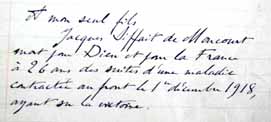 A mon seul fils
Jacques Siffait de Moncourt
mort pour Dieu et pour la France
à 26 ans des suites d'une maladie
contractée au front le 1er décembre 1918,
ayant vu la victoire.